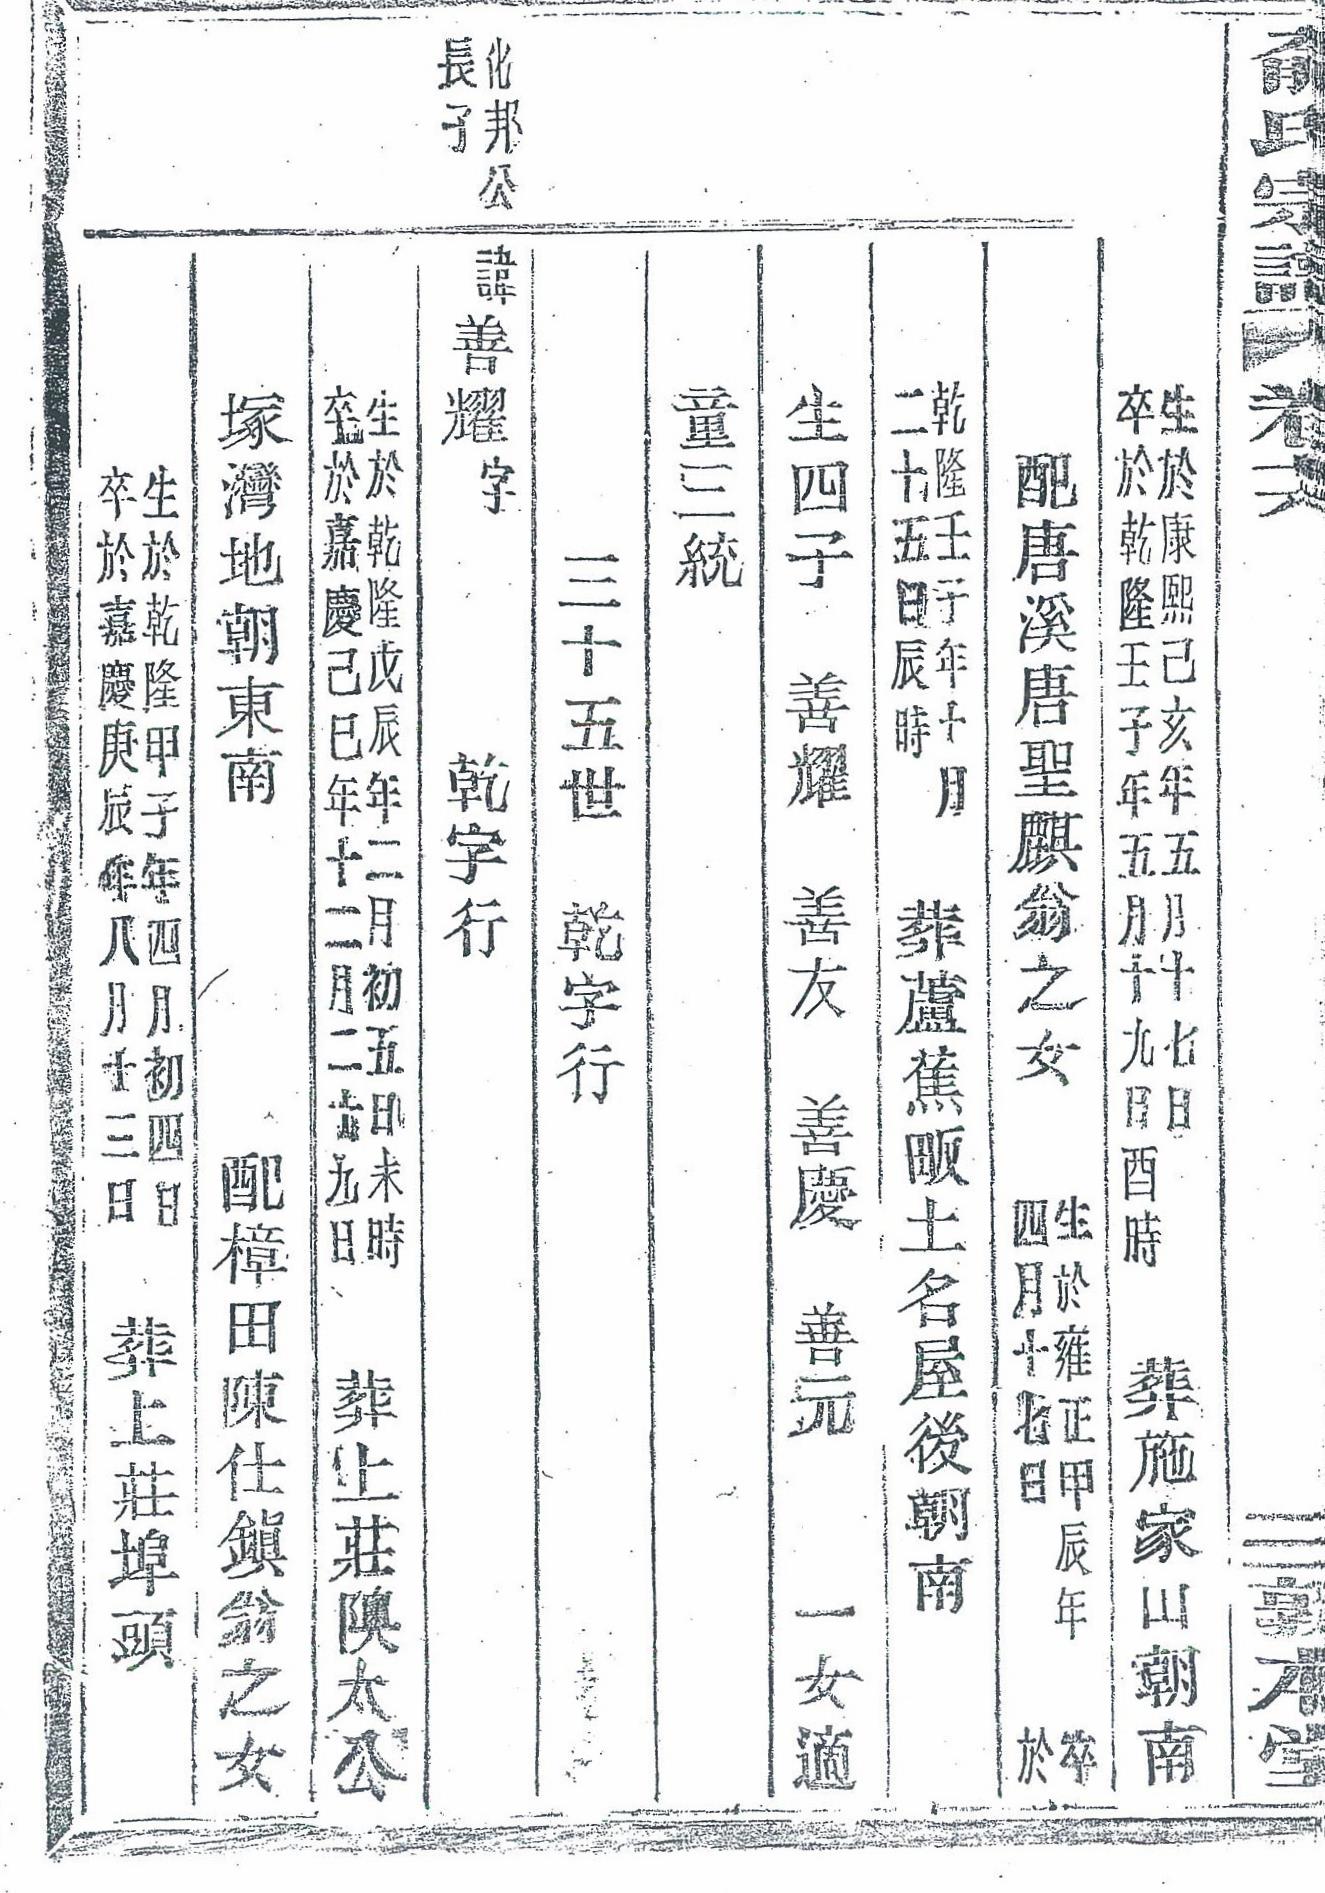 俞氏宗譜 卷六 二 敦本堂
生於康熙己亥年五月十七日
卒於乾隆壬子年五月十九日酉時
葬施家山朝南
配唐溪唐聖麒翁之女
生於雍正甲辰年
四月十七日
卒
於
乾隆壬子年十月
二十五日辰時
葬蘆蕉畈土名屋後朝南
生四子 善耀 善友 善慶 善元 一女適
童三統
三十五世 乾字行
化邦公
長子
諱善耀字 乾字行
生於乾隆戊辰年二月初五日未時
卒於嘉慶己巳年十二月二十九日
葬上莊隩太公
塚灣地朝東南 配樟田陳仕鎮翁之女
生於乾隆甲子年四月初四日
卒於嘉慶庚辰年八月十三日
葬上莊埠頭